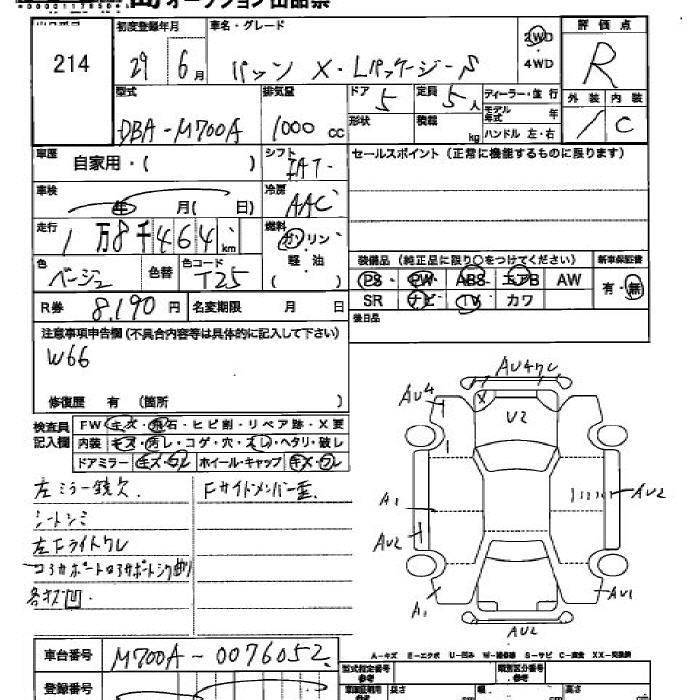 オークション出品票
214
初度登録年月
29年 6月
車名・グレード
パッソ X・Lパッケージ-S
2WD
・4WD
評価点
R
型式
DBA-M700A
排気量
1000 cc
ドア
5
定員
5人
形状
積載
kg
ディーラー・並行
モデル年式 年
ハンドル 左・右
外装 内装
/ C
車歴
自家用・( )
シフト
IAT
セールスポイント(正常に機能するものに限ります)
車検
年 月( 日)
冷房
AAC
走行
1万8千464km
燃料
ガソリン
軽・油
( )
色
ベージュ
色替
色コード
T25
装備品(純正品に限り○をつけてください)
新車保証書
PS PW ABS エアB AW
SR ナビ TV カワ
有・無
R券 8,190円
名変期限 月 日
後日品
注意事項申告欄(不具合内容等は具体的に記入して下さい)
W66
修復歴 有 (箇所 )
検査員記入欄
FW キズ・飛石・ヒビ割・リペア跡・X要
内装 キズ・汚レ・コゲ・穴・スレ・ヘタリ・破レ
ドアミラー キズ・ワレ ホイール・キャップ キズ・ワレ
左ミラー鏡欠
Fサイドメンバー歪
シートシミ
左Fライトワレ
コアサポートロアサポートシク曲り
各オズ凹
AU4ワレ
AU4
X
U2
A1
AU2
AU2
A1
AU1
AU2
車台番号 M700A-0076052
登録番号
A-キズ E-エクボ U-凹み W-補修跡 S-サビ C-腐食 XX-交換済
型式指定番号
参考
類別区分番号
参考
長さ
幅
高さ